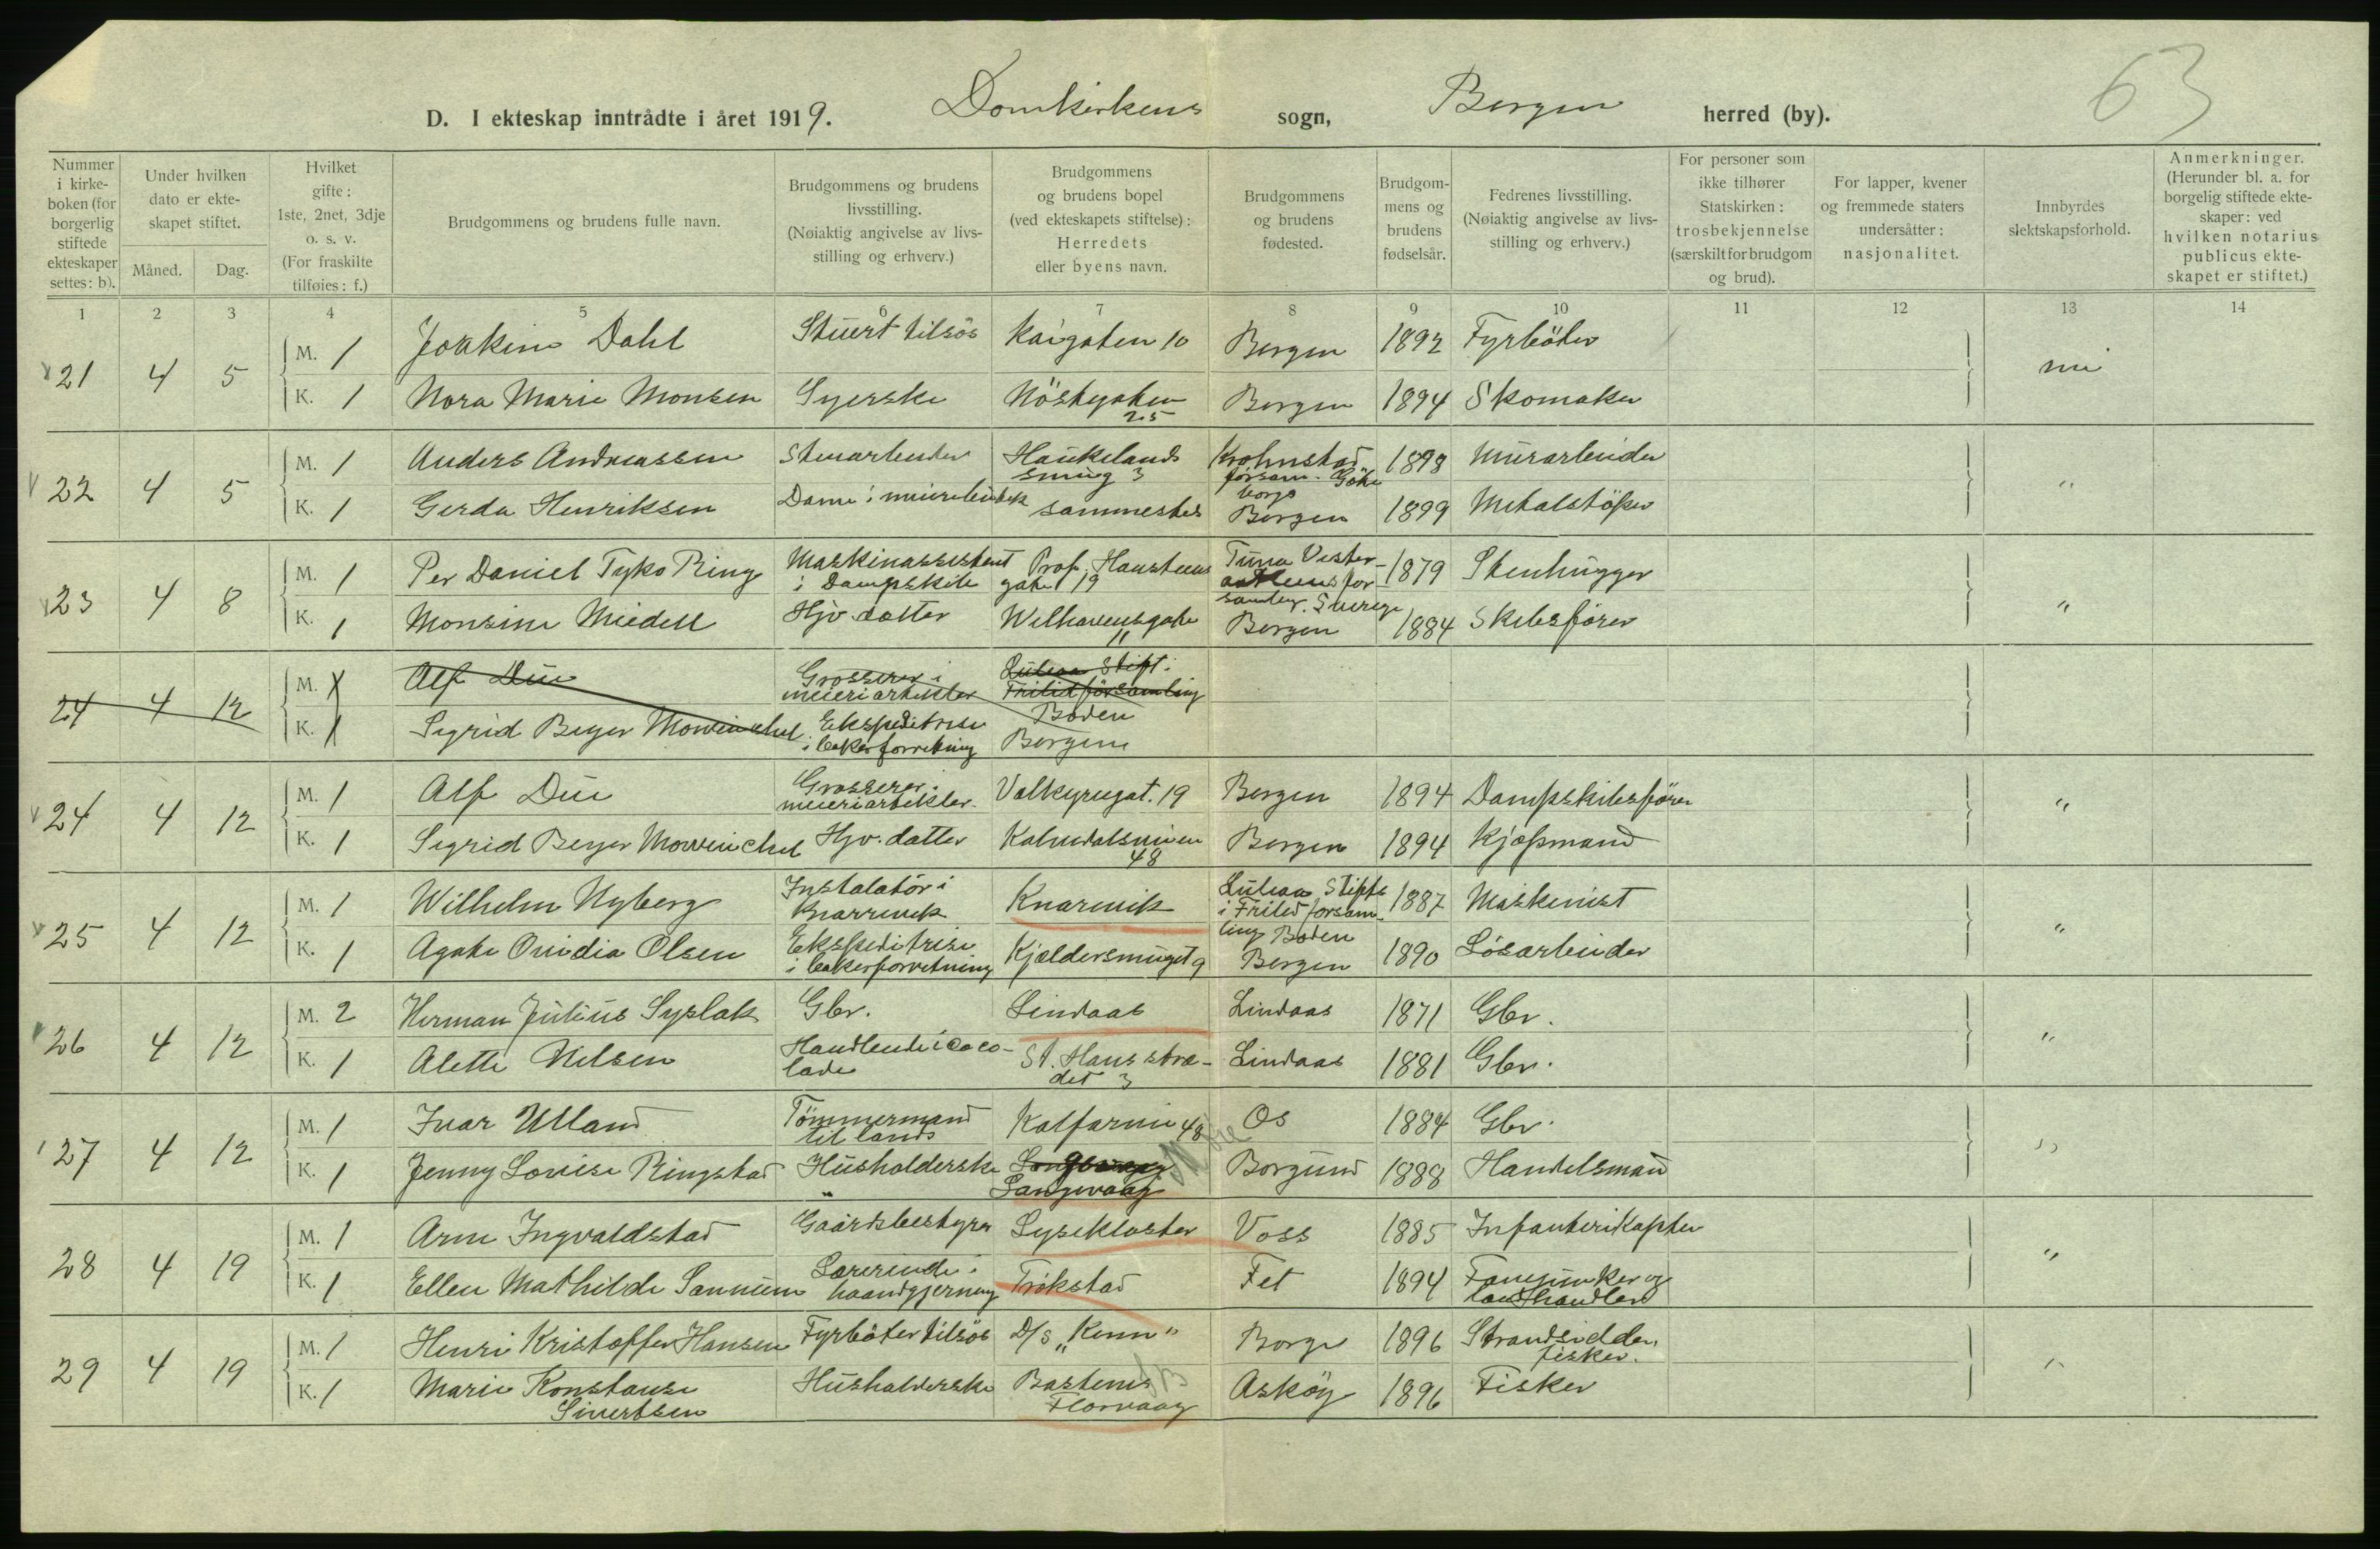 63
D. I ekteskap inntrådte i året 1919. Domkirkens sogn, Bergen herred (by).
Nummer i kirkeboken (for borgerlig stiftede ekteskaper settes: b).
Under hvilken dato er ekteskapet stiftet.
Måned. Dag.
Hvilket gifte: 1ste, 2net, 3dje o. s. v. (For fraskilte tilføies: f.)
Brudgommens og brudens fulle navn.
Brudgommens og brudens livsstilling. (Nøiaktig angivelse av livsstilling og erhverv.)
Brudgommens og brudens bopel (ved ekteskapets stiftelse): Herredets eller byens navn.
Brudgommens og brudens fødested.
Brudgommens og brudens fødselsår.
Fedrenes livsstilling. (Nøiaktig angivelse av livsstilling og erhverv.)
For personer som ikke tilhører Statskirken: trosbekjennelse (særskilt for brudgom og brud).
For lapper, kvener og fremmede staters undersåtter: nasjonalitet.
Innbyrdes slektskapsforhold.
Anmerkninger. (Herunder bl. a. for borgelig stiftede ekteskaper: ved hvilken notarius publicus ekteskapet er stiftet.)
1 2 3 4 5 6 7 8 9 10 11 12 13 14
21 4 5 M. 1 Joakim Dahl Stuert tilsös Kaigaten 10 Bergen 1892 Fyrböter
K. 1 Nora Marie Monsen Syerske Nöstegaten 25 Bergen 1894 Skomaker
22 4 5 M. 1 Anders Andreassen Stenarbeider Haukelands smug 3 Krohnstad försam. Göteborg 1898 Murarbeider "
K. 1 Gerda Henriksen Dame i sammesteds Bergen 1899 Metalstöper
23 4 8 M. 1 Per Daniel Tyko Ring Maskinassistent i Dampskib Prof. Hansteens gate 19 Tuna Sverige 1879 Stenhugger "
K. 1 Monsine Miedell Hjv. datter Welhavensgate 11 Bergen 1884 Skibsförer
24 4 12 M. 1 Alf Due Grosserer i meieriartikler Luleaa Stift i Fritid församling Boden
K. 1 Sigrid Beyer Mowinckel Ekspeditrise i bakerforretning Bergen
24 4 12 M. 1 Alf Due Grosserer i meieriartikler Valkyriegat. 19 Bergen 1894 Dampskibsförer "
K. 1 Sigrid Beyer Mowinckel Hjv. datter Kalvedalsveien 48 Bergen 1894 Kjøpmand
25 4 12 M. 1 Wilhelm Nyberg Instalatör i Knarrevik Knarevik Luleaa Stifts i Fritid forsamling Boden 1887 Maskinist "
K. 1 Agate Ovidia Olsen Ekspeditrise i bakerforretning Kjeldersmuget 9 Bergen 1890 Lösarbeider
26 4 12 M. 2 Herman Julius Syslak Gbr. Lindaas Lindaas 1871 Gbr. "
K. 1 Alette Nilsen Handlende i cocolade St. Hansstrædet 3 Lindaas 1881 Gbr.
27 4 12 M. 1 Ivar Ulland Tömmermand til lands Kalfarvei 48 Os 1884 Gbr. "
K. 1 Jenny Lovise Ringstad Husholderske Langevaag Borgund 1888 Handelsmand
28 4 19 M. 1 Arne Ingvaldstad Gaardsbestyrer Lysekloster Voss 1885 Infanterikaptein "
K. 1 Ellen Mathilde Sannum Lærerinde i haandgjerning Trökstad Fet 1894 Fanejunker og landhandler
29 4 19 M. 1 Henri Kristoffer Hansen Fyrböter tilsös D/S "Kem" Borge 1896 Strandsidder, fisker. "
K. 1 Marie Konstanse Sivertsen Husholderske Florvaag Asköy 1896 Fisker